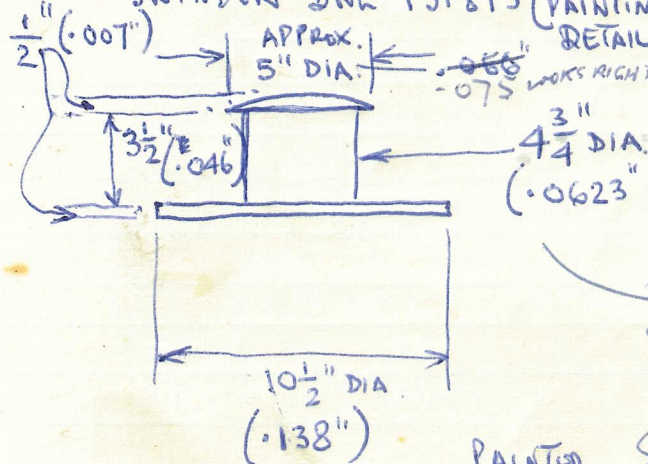 SWINDON DMU (PAINTIN
DETAIL
1/2" (.007")
APPROX.
5" DIA.
.066"
.075 LOOKS RIGHT
3 1/2" (.046")
4 3/4" DIA.
(.0623"
10 1/2" DIA
(.138")
PAINTED